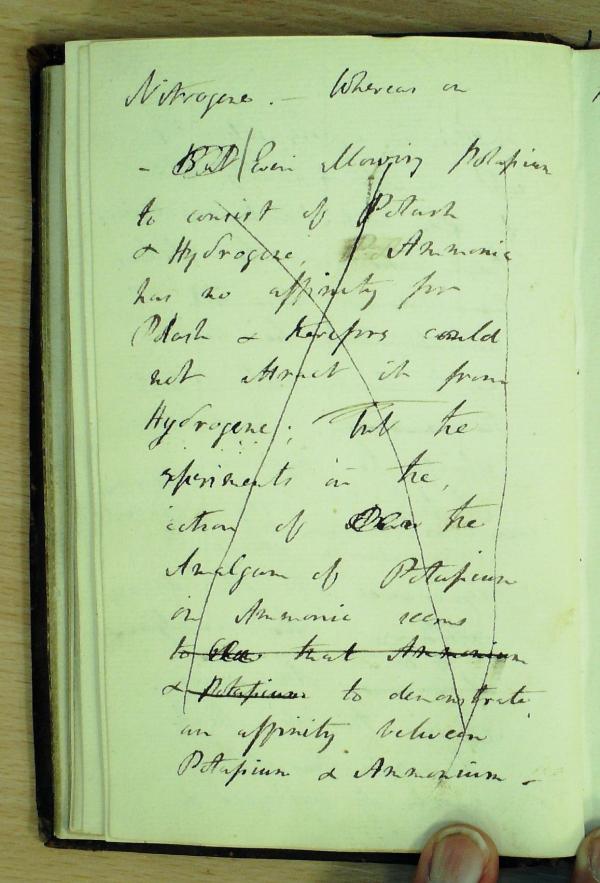 Nitrogene. — Whereas on
- But Even allowing Potassium
to consist of Potash
& Hydrogene, Ammonia
has no affinity for
Potash & therefore could
not attract it from
Hydrogene; but the
experiments on the
action of the
Amalgam of Potassium
on Ammonia seems
to shew that Ammonium
& Potassium to demonstrate
an affinity between
Potassium & Ammonium -